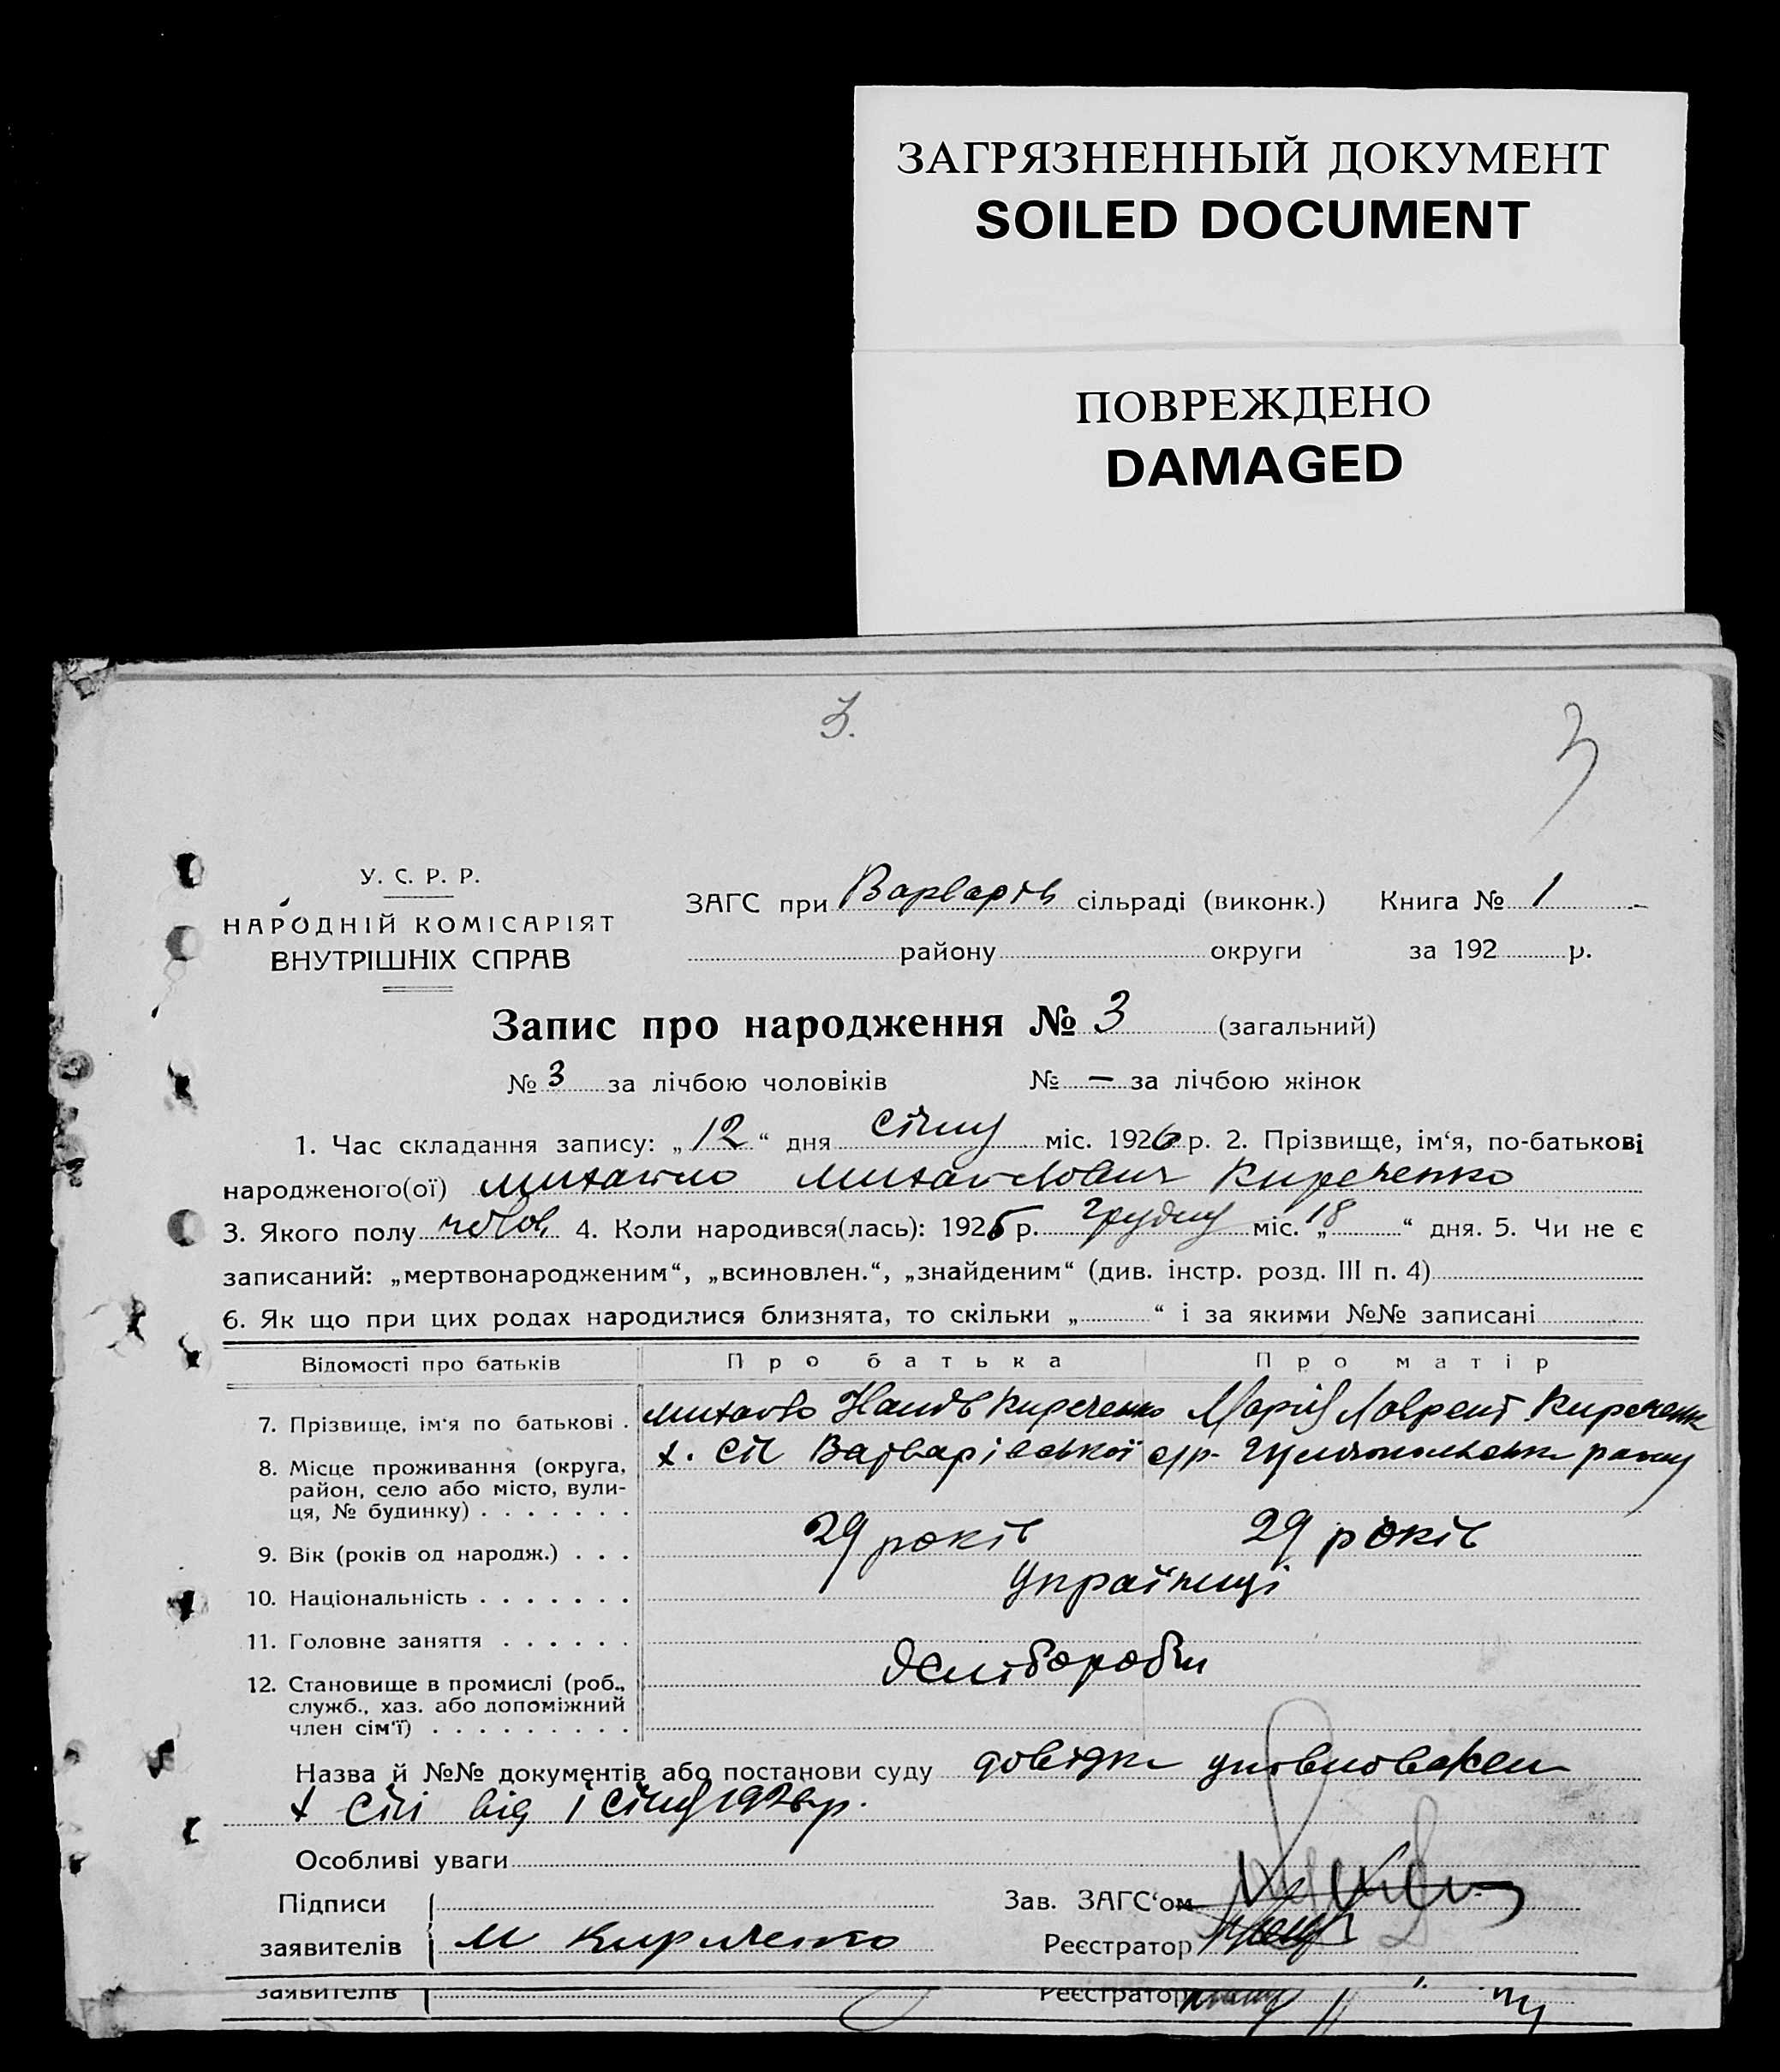 ЗАГРЯЗНЕННЫЙ ДОКУМЕНТ
SOILED DOCUMENT
ПОВРЕЖДЕНО
DAMAGED
3.
3
У. С. Р. Р.
НАРОДНІЙ КОМІСАРІЯТ
ВНУТРІШНІХ СПРАВ
ЗАГС при Варварів сільраді (виконк.) Книга № 1
району округи за 192 р.
Запис про народження № 3 (загальний)
№ 3 за лічбою чоловіків № — за лічбою жінок
1. Час складання запису: „12“ дня січня міс. 1926 р. 2. Прізвище, ім‘я, по-батькові
народженого(ої) Михайло Михайлович Кириченко
3. Якого полу чолов 4. Коли народився(лась): 1925 р. Грудня міс. „18“ дня. 5. Чи не є
записаний: „мертвонародженим“, „всиновлен.“, „знайденим“ (див. інстр. розд. III п. 4)
6. Як що при цих родах народилися близнята, то скільки „ “ і за якими №№ записані
Відомості про батьків Про батька Про матір
7. Прізвище, ім‘я по батькові . Михайло Кириченко Марія Лаврент Кириченко
8. Місце проживання (округа, х. Січ Варварівської с/р.
район, село або місто, вули-
ця, № будинку) . . . . . . .
9. Вік (років од народж.) . . . 29 років 29 років
10. Національність . . . . . . . Українці
11. Головне заняття . . . . . .
Хлібороби
12. Становище в промислі (роб.,
служб., хаз. або допоміжний
член сім‘ї) . . . . . . . . .
Назва й №№ документів або постанови суду довідка уповноважен
х Січі від 1 січня 1926 р.
Особливі уваги
Підписи Зав. ЗАГС‘ом
заявителів М Кириченко Реєстратор
заявителів Реєстратор